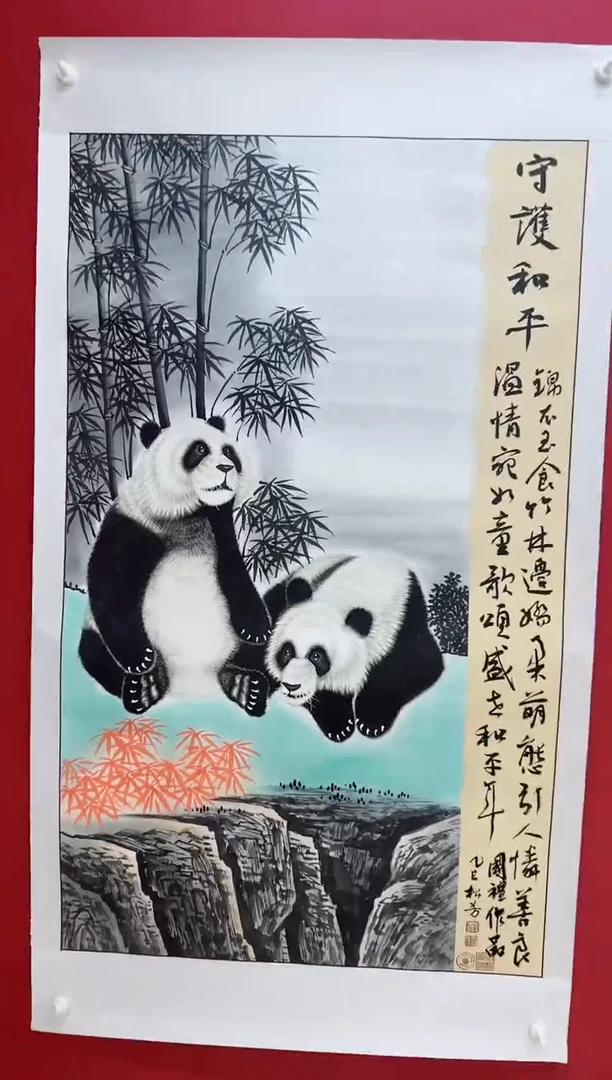 守護和平
錦衣玉食竹林邊嬌柔萌態引人憐善良
溫情宛如童歌頌盛世和平年
國禮作品
乙巳松芳